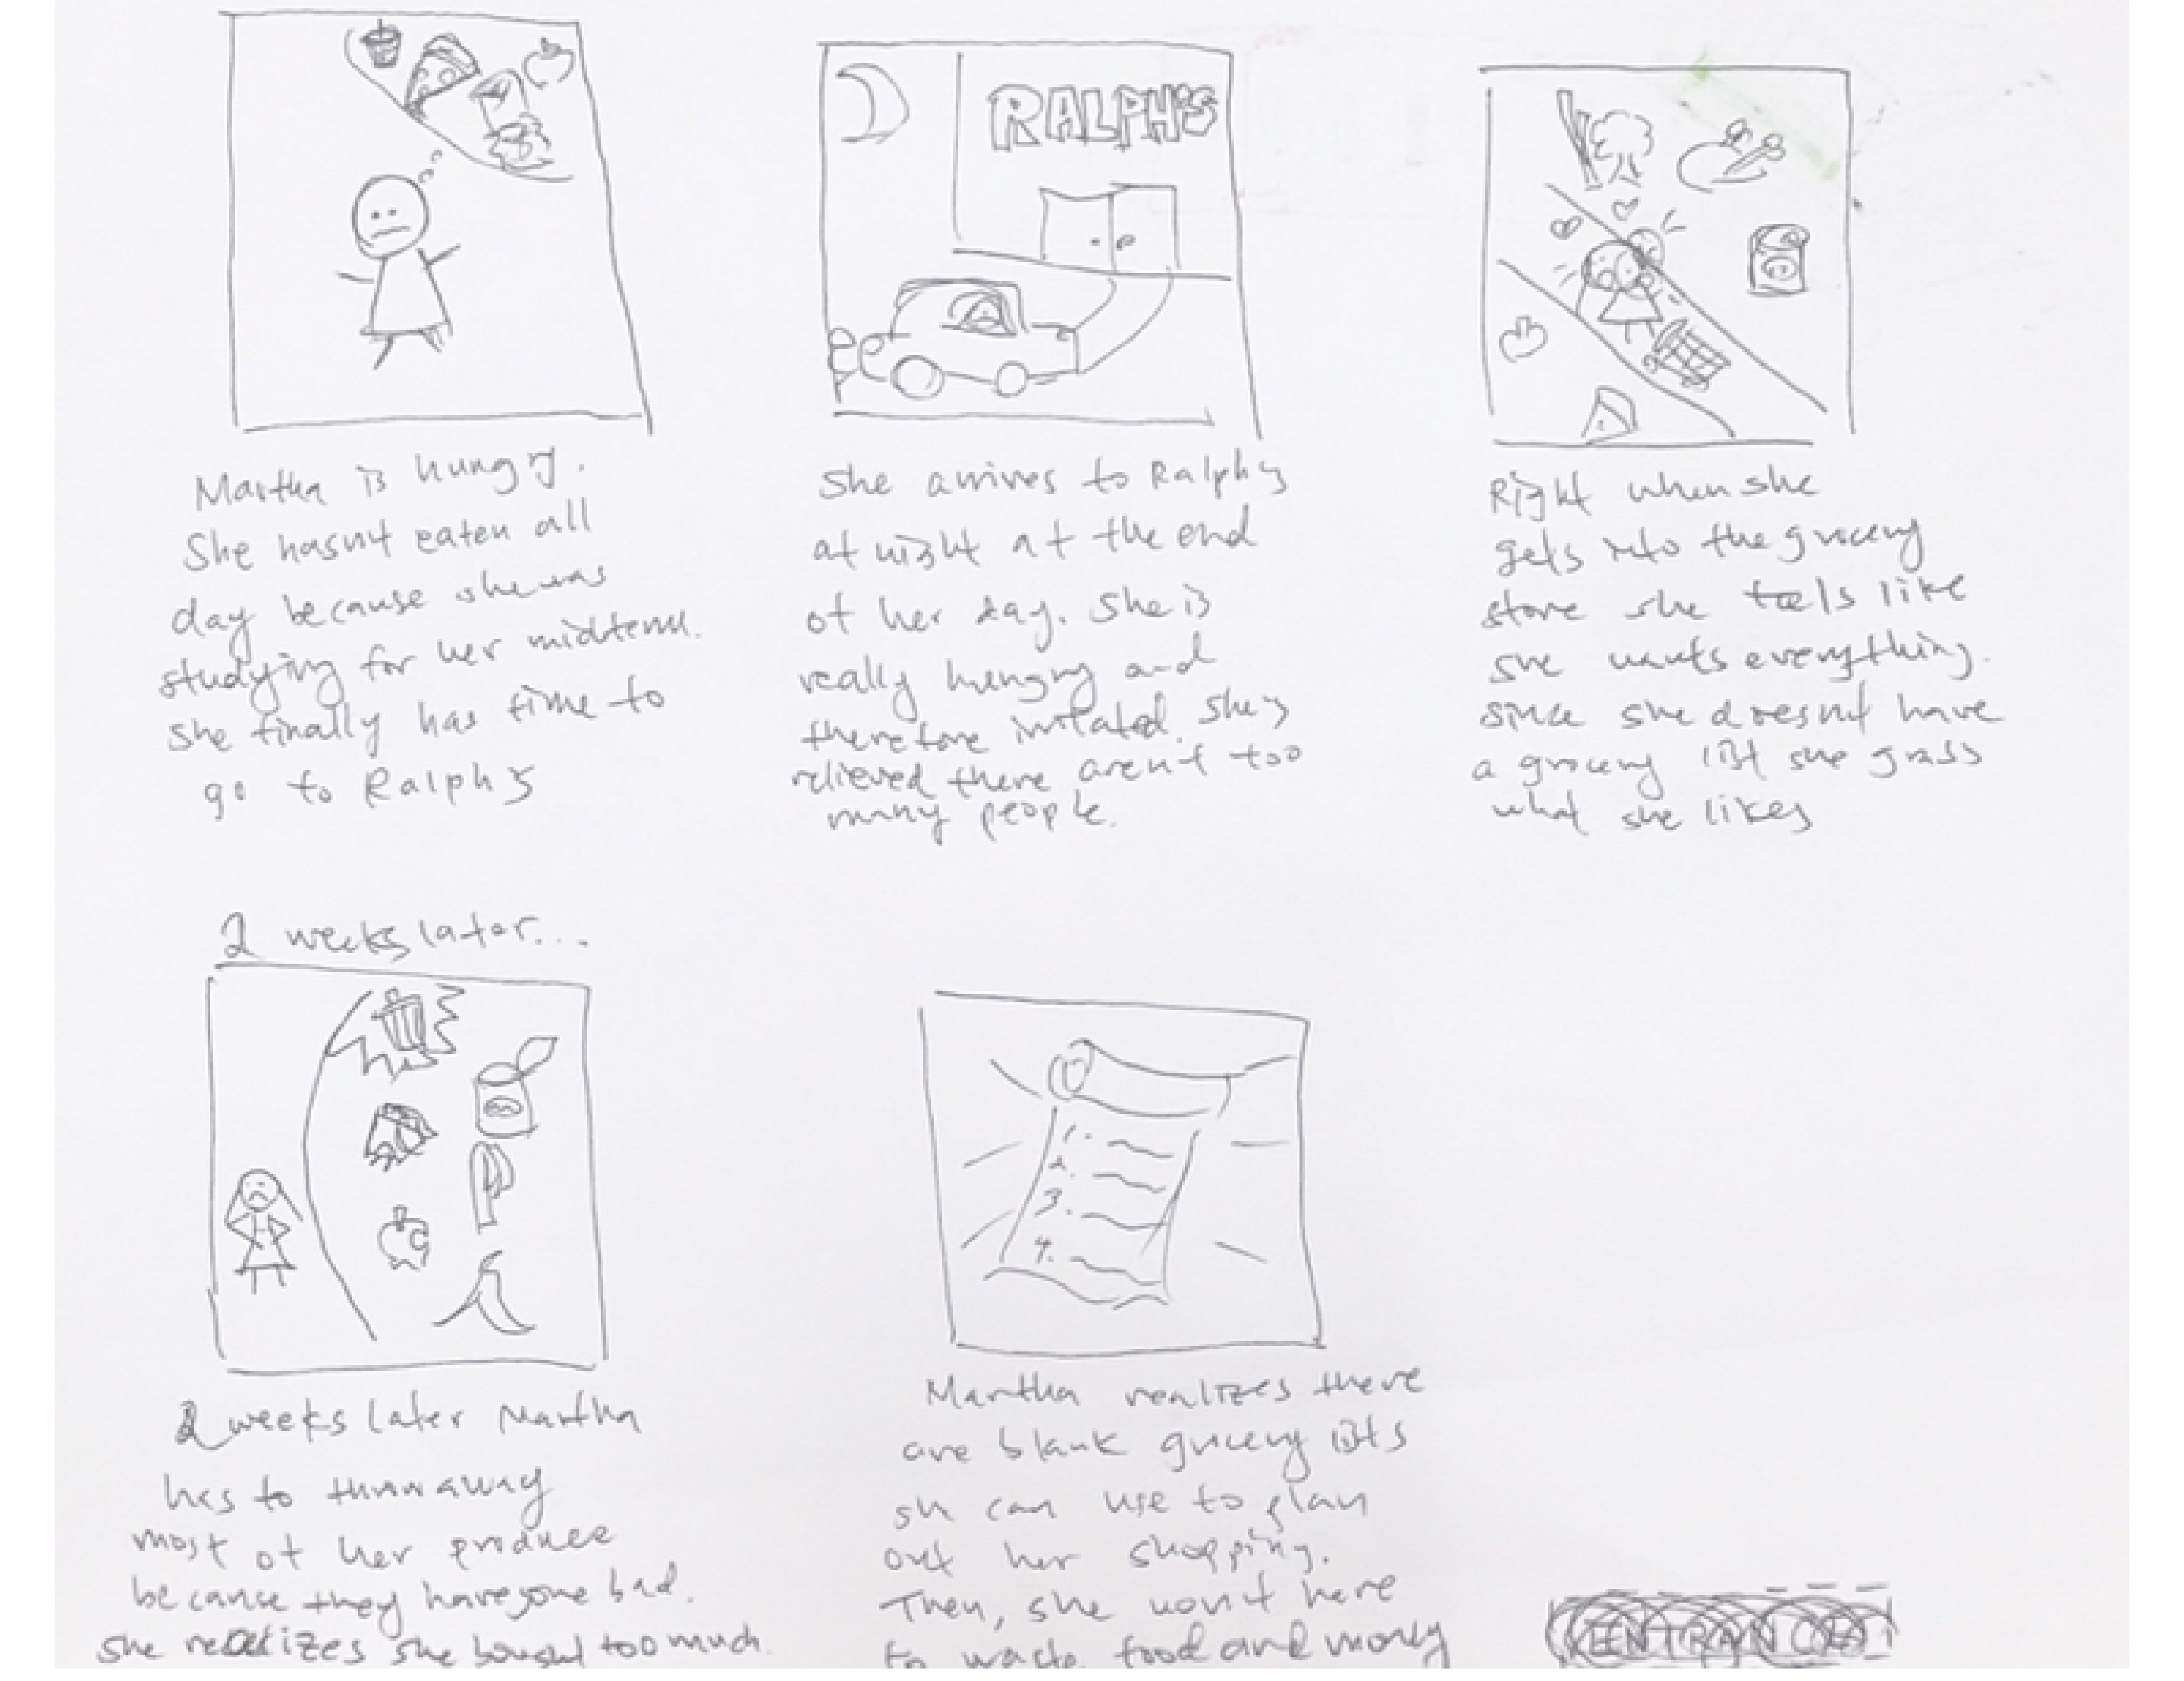 Martha is hungry.
She hasnt eaten all
day because she was
studying for her midterm.
She finally has time to
go to Ralphs
RALPH'S
She arrives to Ralphs
at night at the end
of her day. She is
really hungry and
therefore irritated. She's
relieved there aren't too
many people.
Right when she
gets into the grocery
store she feels like
she wants everything.
since she doesnt have
a grocery list she grabs
what she likes
2 weeks later...
2 weeks later Martha
has to throw away
most of her produce
because they have gone bad.
She realizes she bought too much.
1.
2.
3.
4.
Martha realizes there
are blank grocery lists
sh can use to plan
out her shopping.
Then, she won't have
to waste food and money
ENTRANCE